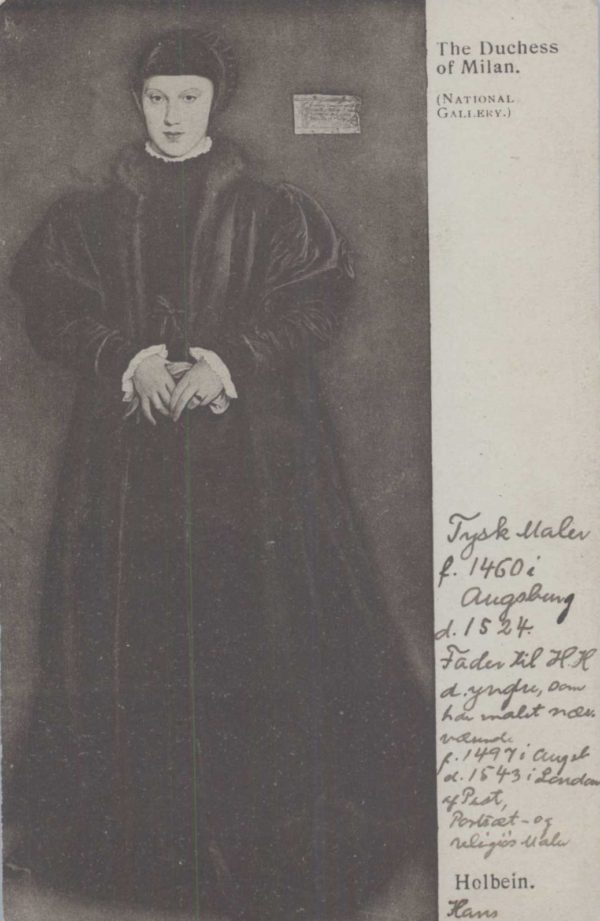 The Duchess
of Milan.
(NATIONAL
GALLERY.)
Tysk Maler
f. 1460 i
Augsburg
d. 1524.
Fader til H.H
d. yngre, som
har malet nær-
værende.
f. 1497 i Augsb
d. 1543 i London
af Pest,
Portræt- og
religiøs Maler
Holbein.
Hans